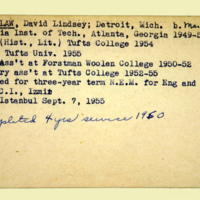 LAW, David Lindsey; Detroit, Mich. b.
ia Inst. of Tech., Atlanta, Georgia 1949-5
(Hist., Lit.) Tufts College 1954
Tufts Univ. 1955
Ass't at Forstman Woolen College 1950-52
ry ass't at Tufts College 1952-55
ed for three-year term N.E.M. for Eng and
C.I., Izmir
Istanbul Sept. 7, 1955
pleted 4 yrs' service 1960